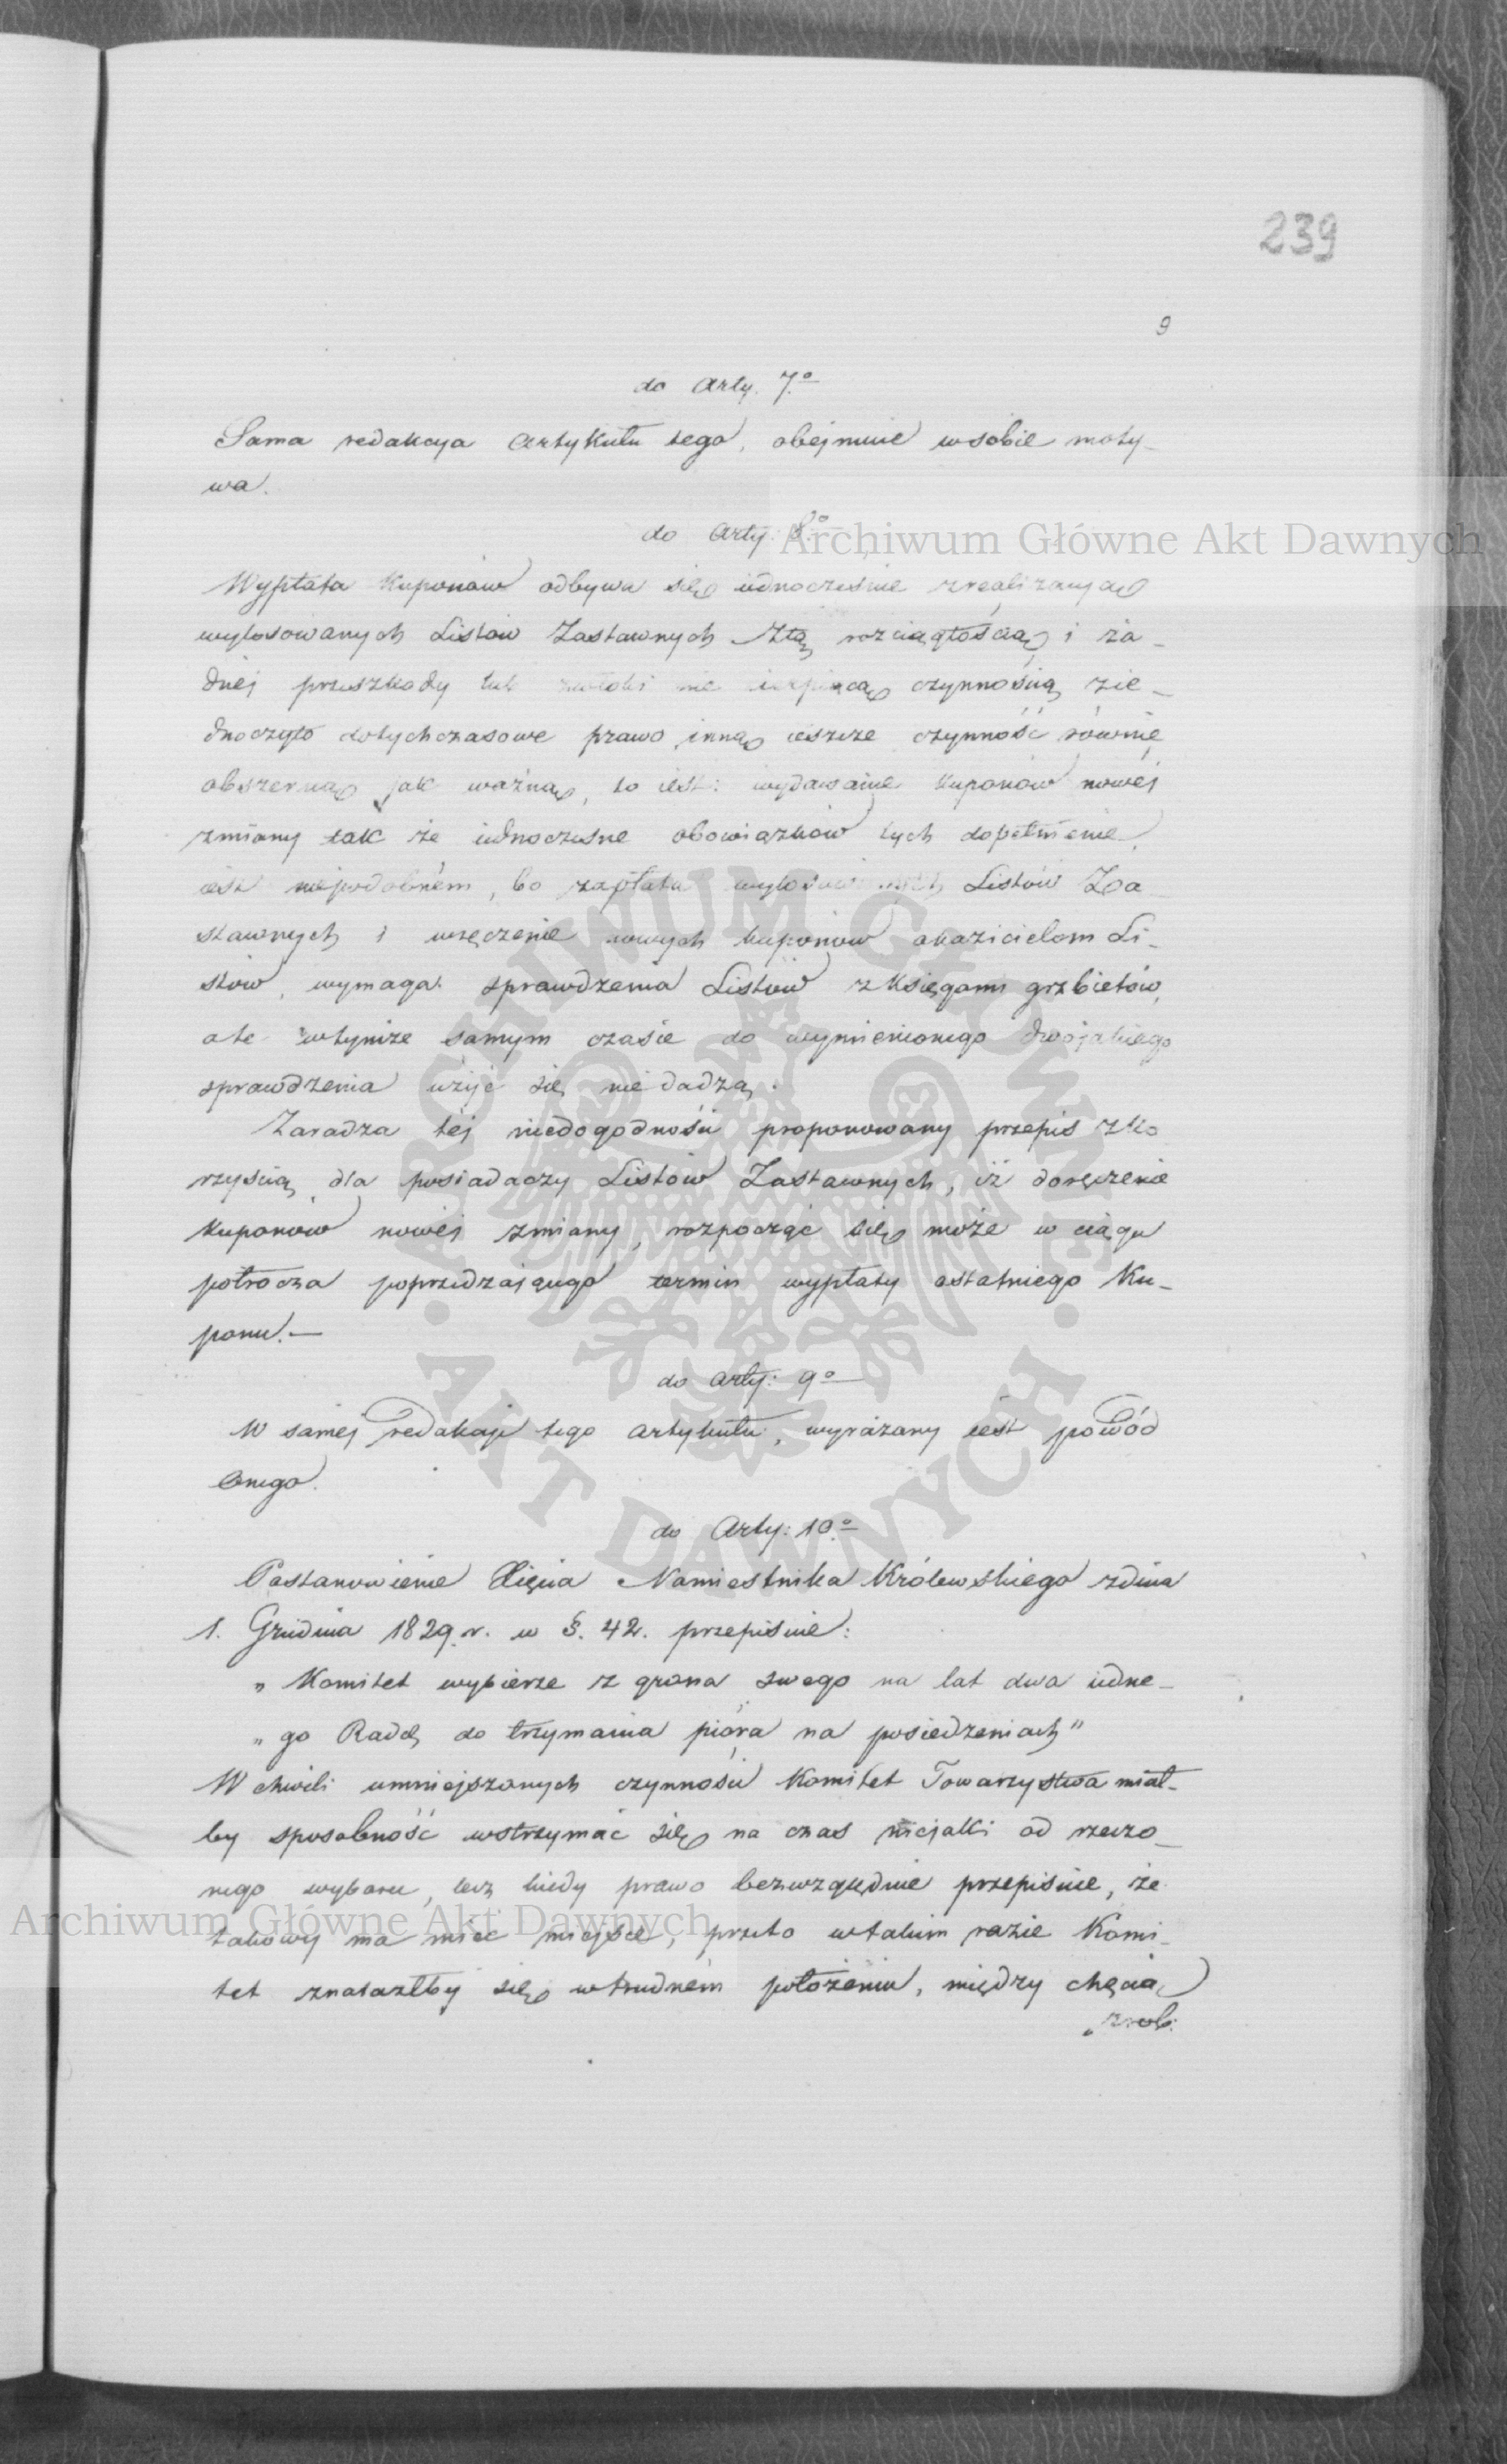 239
9
do Arty. 7.o
Sama redakcya Artykułu tego, obejmuie w sobie moty-
wa.
do Arty: 8.o
Wypłata Kuponów odbywa się iednocześnie z realizacyą
wylosowanych Listów Zastawnych. Ztą rozciągłością i ża-
dnéj przeszkody lub zwłoki nie cierpiącą czynnością zie-
dnoczyło dotychczasowe prawo inną ieszcze czynność równie
obszerną jak ważną, to iest: wydawanie kuponów nowéj
zmiany tak że iednoczesne obowiązków tych dopełnienie,
iest niepodobném, bo zapłata wylosowanych Listów Za-
stawnych i wręczenie nowych kuponów okazicielom Li-
stów, wymaga sprawdzenia Listów z księgami grzbietów,
a te w tymże samym czasie do wymienionego dwojakiego
sprawdzenia użyć się nie dadzą.
Zaradza téj niedogodności proponowany przepis z ko
rzyścią dla posiadaczy Listów Zastawnych, iż doręczenie
kuponów nowéj zmiany, rozpocząć się może w ciągu
półrocza poprzedzaiącego termin wypłaty ostatniego Ku-
ponu.—
do Arty: 9o
W saméj redakcyi tego artykułu, wyrażany iest powód
onego.
do Arty: 10.o
Postanowienie Xięcia Namiestnika Królewskiego zdnia
1. Grudnia 1829. r. w §. 42. przepisuie:
„ Komitet wybierze z grona swego na lat dwa iedne-
„ go Radcę do trzymania pióra na posiedzeniach"
W chwili umniejszonych czynności Komitet Towarzystwa miał-
by sposobność wstrzymać się na czas niejaki od rzeczo-
nego wyboru, lecz kiedy prawo bezwzględnie przepisuie, że
takowy ma mieć miejsce, przeto w takim razie Komi-
tet znalazłby się w trudném położeniu, między chęcią
zrob:
Archiwum Główne Akt Dawnych
Archiwum Główne Akt Dawnych
ARCHIWUM GŁÓWNE
AKT DAWNYCH